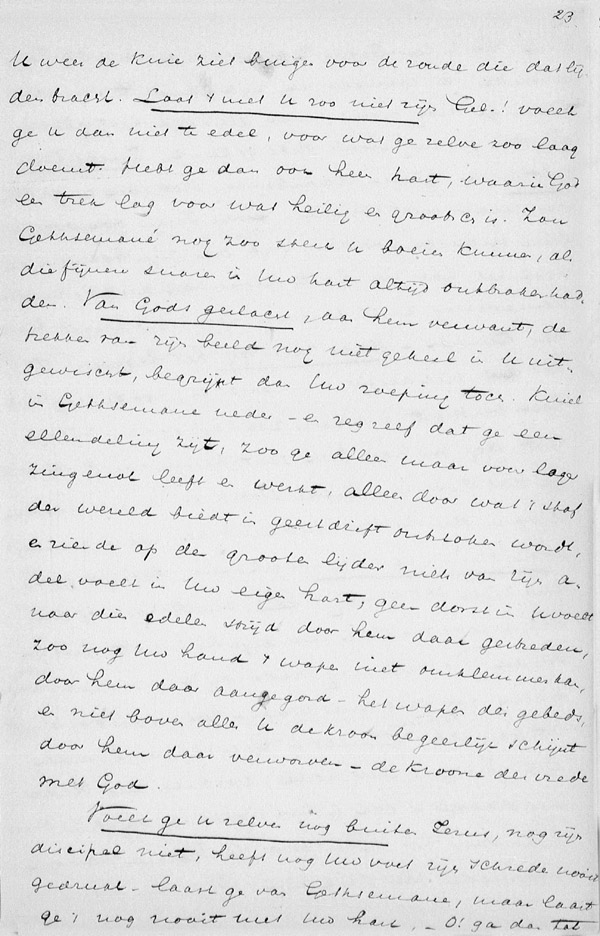 23
U weer de knie ziet buigen voor de zonde die dat lij-
den bracht. Laat 't met U zoo niet zijn Gel.! voelt
ge U dan niet te edel, voor wat ge zelve zoo laag
doemt. Hebt ge dan ook geen hart, waarin God
een trek lag voor wat heilig en grootsch is. Zou
Gethsemané nog zoo sterk U boeien kunnen, als
die fijnere snaren in Uw hart altijd ontbroken had-
den. Van Gods geslacht, aan hem verwant, de
trekken van zijn beeld nog niet geheel in U uit-
gewischt, begrijpt dan Uw roeping toch. Kniel
in Gethsemane neder – en zeg zelf dat ge een
ellendeling zijt, zoo ge alleen maar voor lager
zingenot leeft en werkt, alleen door wat 't stof
der wereld biedt in geestdrift ontstoken wordt,
en ziende op den grooten lijder niets van zijn a-
del voelt in Uw eigen hart, geen dorst in U voelt
naar dien edelen strijd door hem daar gestreden,
zoo nog Uw hand 't wapen niet omklemmen kan,
door hem daar aangegord – het wapen des gebeds,
en niet boven alles U de kroon begeerlijk schijnt
door hem daar verworven – de kroone des vrede
met God.
Voelt ge U zelven nog buiten Jezus, nog zijn
discipel niet, heeft nog Uw voet zijn schrede nooit
gedrukt – laast ge van Gethsemane, maar laast
ge 't nog nooit met Uw hart, – O! ga dan tot